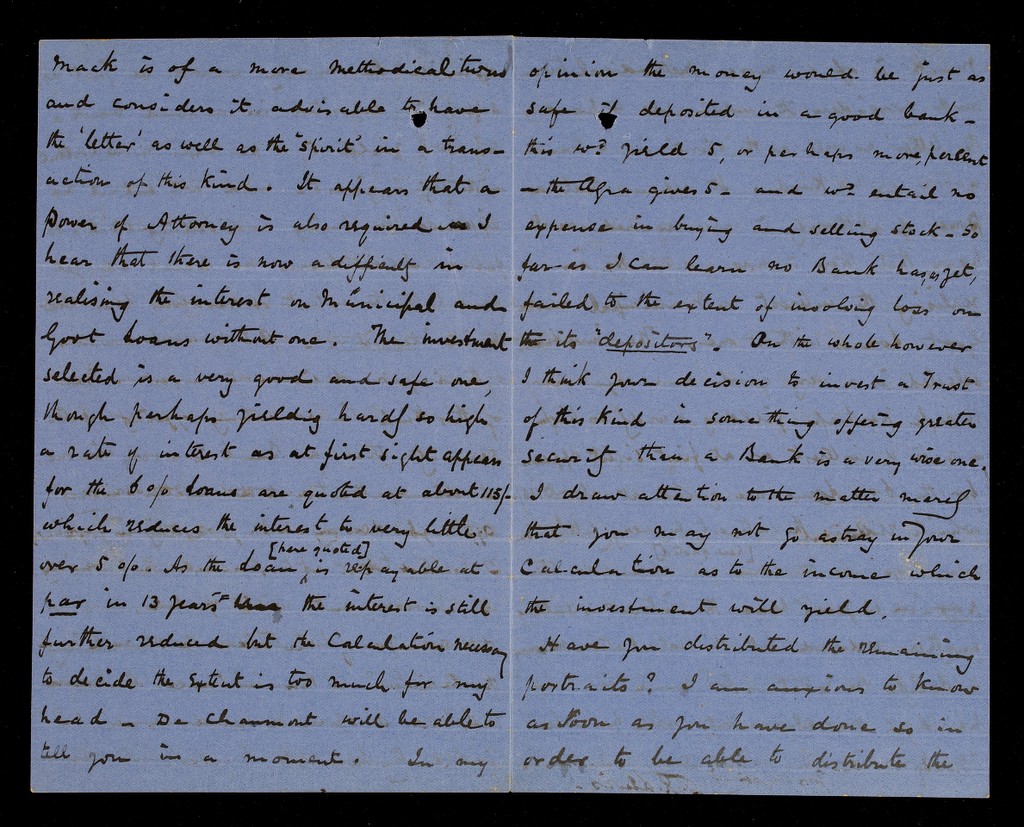 Mack is of a more methodical turn
and considers it advisable to have
the 'letter' as well as the "spirit" in a trans-
action of this kind. It appears that a
Power of Attorney is also required as I
hear that there is now a difficulty in
realising the interest on Municipal and
Govt Loans without one. The investment
selected is a very good and safe one,
though perhaps yielding hardly so high
a rate of interest as at first sight appears
for the 6 o/o Loans are quoted at about 115/-
which reduces the interest to very little
over 5 o/o. As the Loan [here quoted] is repayable at
par in 13 years time the interest is still
further reduced but the Calculation necessary
to decide the extent is too much for my
head - De Chaumont will be able to
tell you in a moment. In my
opinion the money would be just as
safe if deposited in a good bank -
this wd yield 5, or perhaps more, per cent
- the Agra gives 5 - and wd entail no
expense in buying and selling stock - So
far as I can learn no Bank has, as yet,
failed to the extent of involving loss on
the its "depositors". On the whole however
I think your decision to invest a Trust
of this kind in something offering greater
security than a Bank is a very wise one.
I draw attention to the matter merely
that you may not go astray in your
Calculation as to the income which
the investment will yield.
Have you distributed the remaining
portraits? I am anxious to know
as soon as you have done so in
order to be able to distribute the